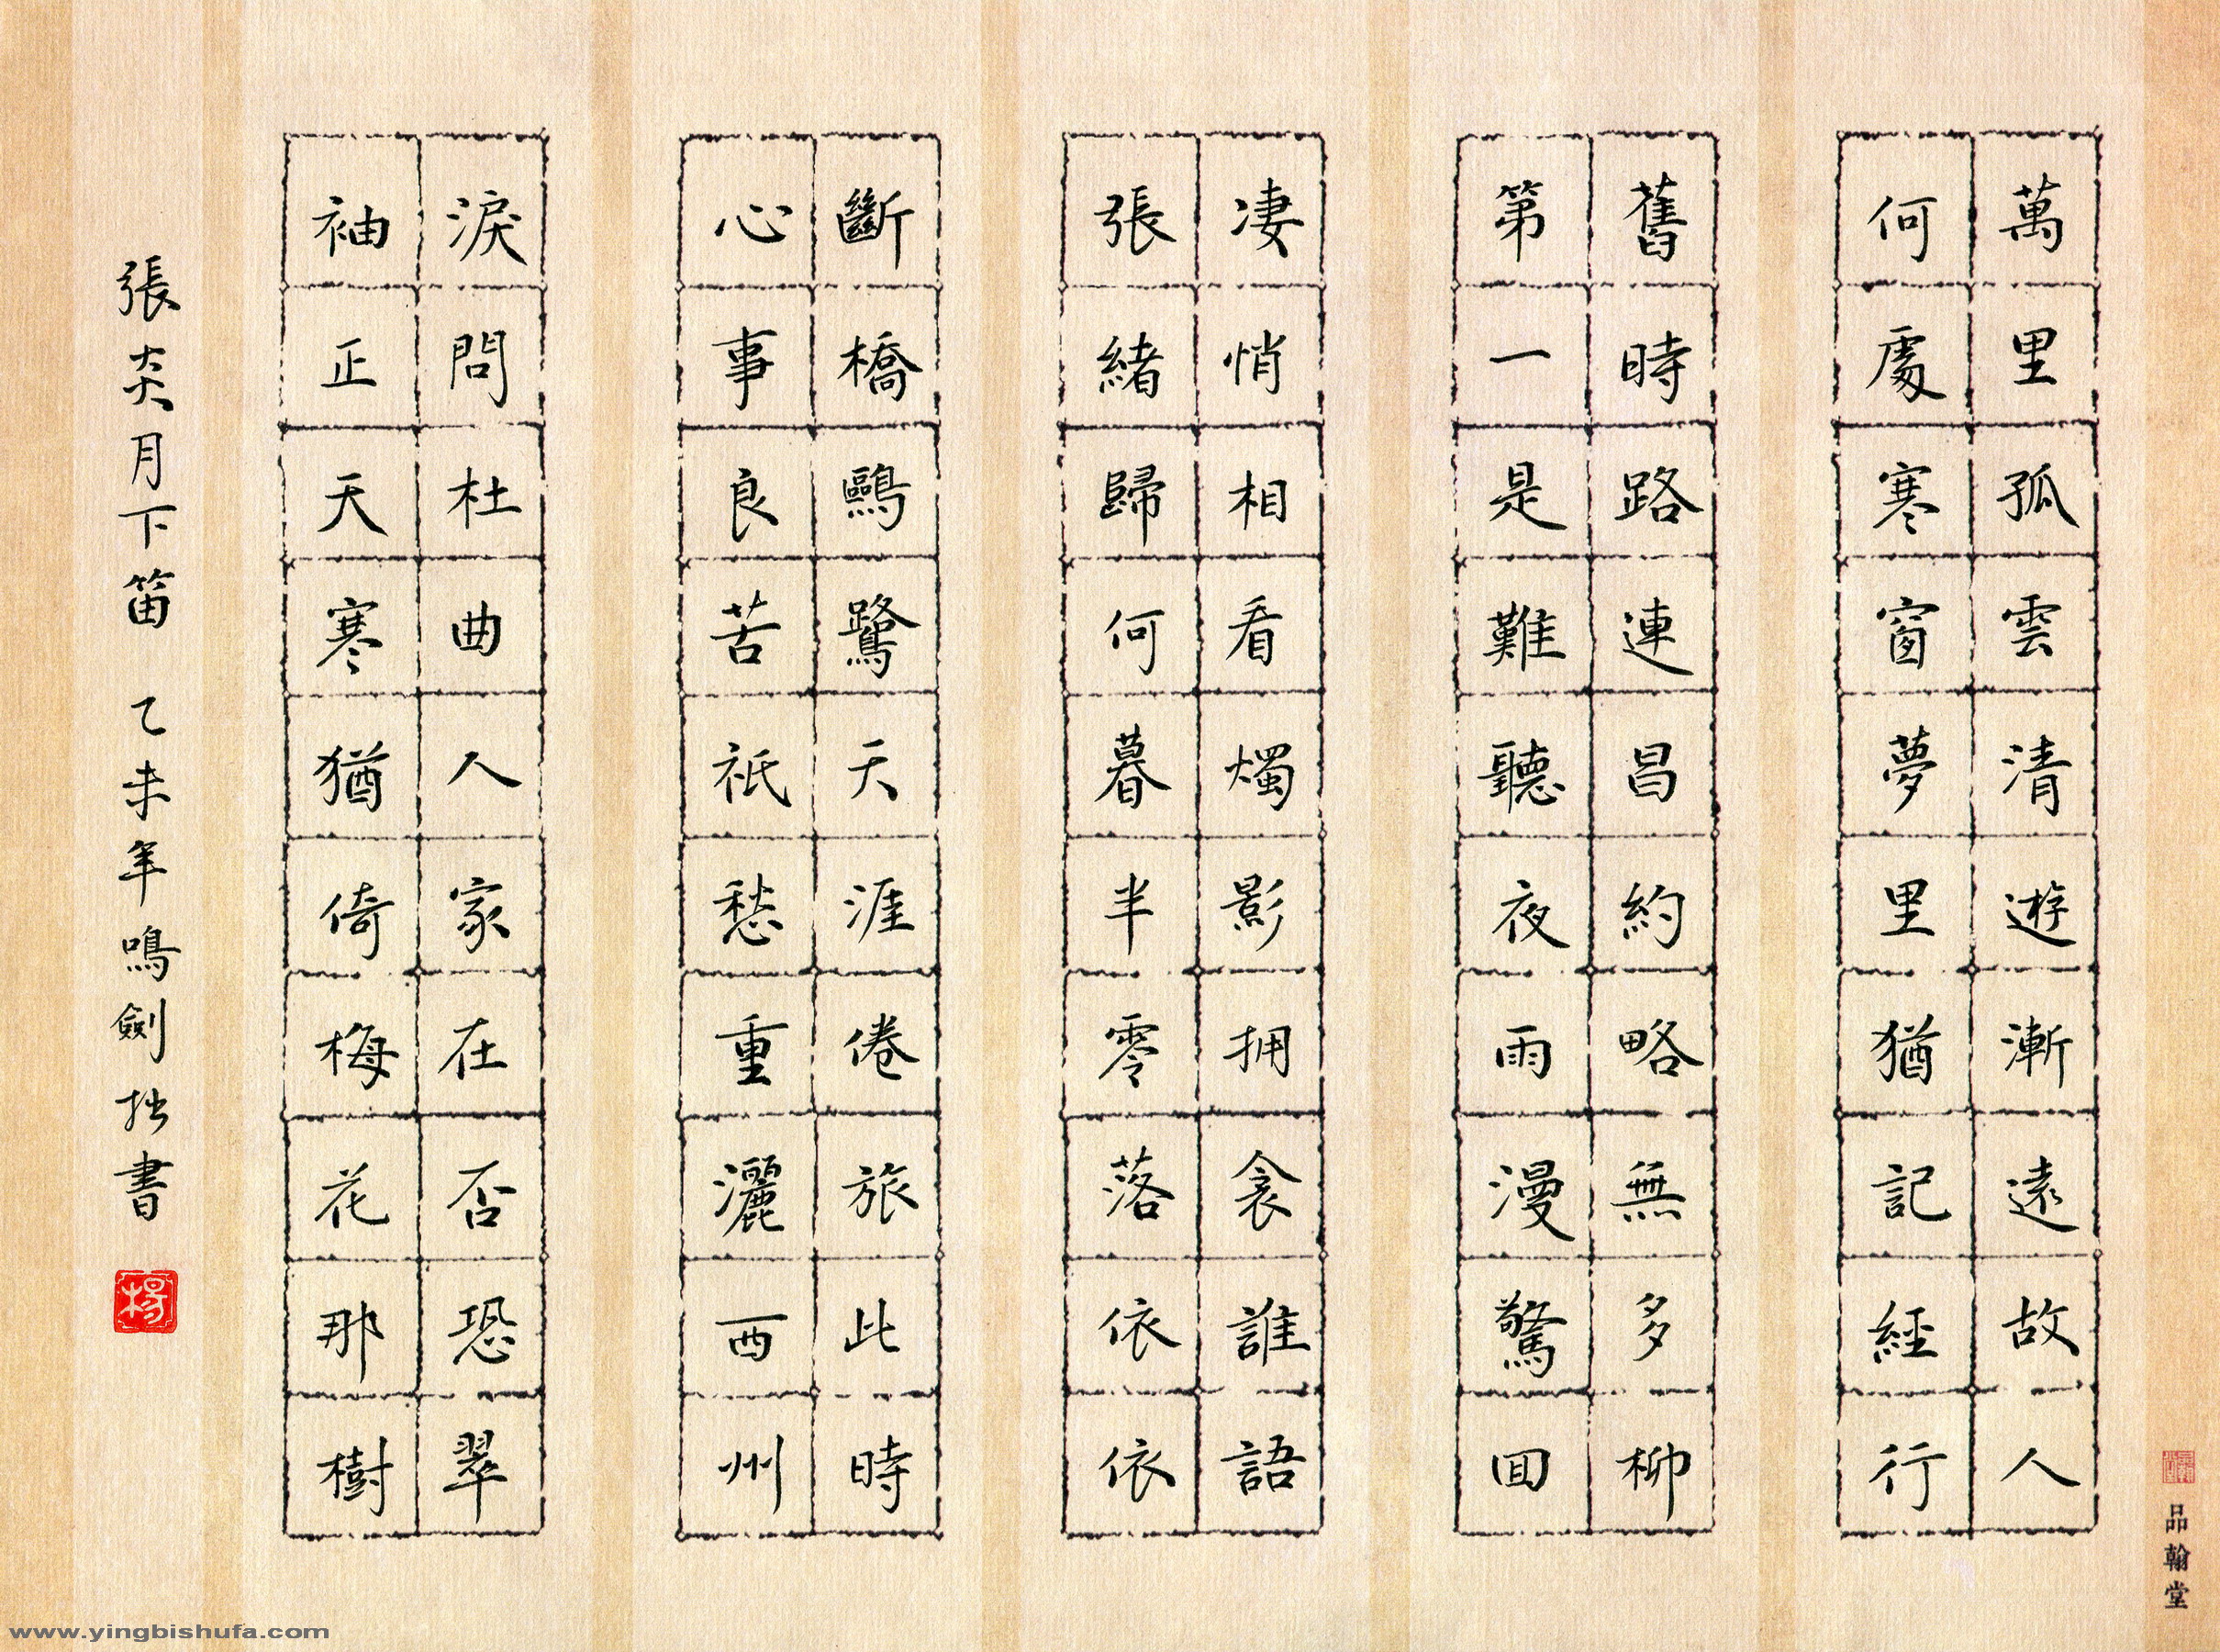 萬里孤雲清遊漸遠故人
何處寒窗夢里猶記經行
舊時路連昌約略無多柳
第一是難聽夜雨漫驚回
凄悄相看燭影拥衾誰語
張緒歸何暮半零落依依
斷橋鷗鷺天涯倦旅此時
心事良苦衹愁重灑西州
淚問杜曲人家在否恐翠
袖正天寒猶倚梅花那樹
張炎月下笛 乙未年鳴劍拙書
楊
品翰堂
www.yingbishufa.com